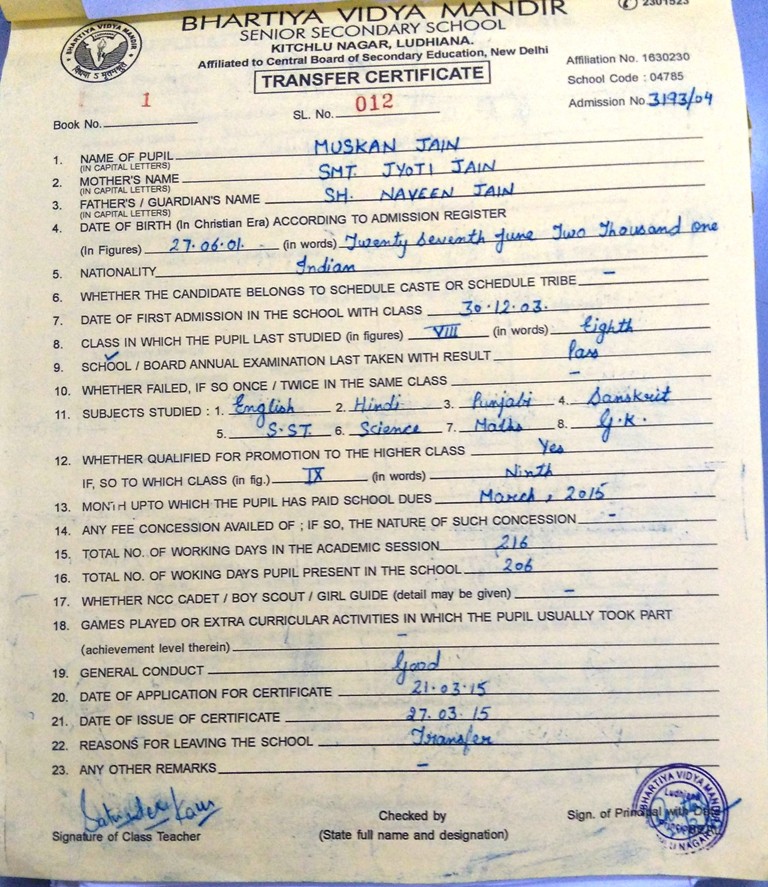 BHARTIYA VIDYA MANDIR
2301523
SENIOR SECONDARY SCHOOL
KITCHLU NAGAR, LUDHIANA.
Affiliated to Central Board of Secondary Education, New Delhi
TRANSFER CERTIFICATE
Affiliation No. 1630230
School Code : 04785
Admission No. 3193/04
Book No. 1
SL. No. 012
1. NAME OF PUPIL MUSKAN JAIN
(IN CAPITAL LETTERS)
2. MOTHER'S NAME SMT. JYOTI JAIN
(IN CAPITAL LETTERS)
3. FATHER'S / GUARDIAN'S NAME SH. NAVEEN JAIN
(IN CAPITAL LETTERS)
4. DATE OF BIRTH (In Christian Era) ACCORDING TO ADMISSION REGISTER
(In Figures) 27.06.01. (in words) Twenty Seventh June Two Thousand one
5. NATIONALITY Indian
6. WHETHER THE CANDIDATE BELONGS TO SCHEDULE CASTE OR SCHEDULE TRIBE —
7. DATE OF FIRST ADMISSION IN THE SCHOOL WITH CLASS 30.12.03.
8. CLASS IN WHICH THE PUPIL LAST STUDIED (in figures) VIII (in words) Eighth
9. SCHOOL / BOARD ANNUAL EXAMINATION LAST TAKEN WITH RESULT Pass
10. WHETHER FAILED, IF SO ONCE / TWICE IN THE SAME CLASS —
11. SUBJECTS STUDIED : 1. English 2. Hindi 3. Punjabi 4. Sanskrit
5. S.ST. 6. Science 7. Maths 8. G.K.
12. WHETHER QUALIFIED FOR PROMOTION TO THE HIGHER CLASS Yes
IF, SO TO WHICH CLASS (in fig.) IX (in words) Ninth
13. MONTH UPTO WHICH THE PUPIL HAS PAID SCHOOL DUES March, 2015
14. ANY FEE CONCESSION AVAILED OF ; IF SO, THE NATURE OF SUCH CONCESSION —
15. TOTAL NO. OF WORKING DAYS IN THE ACADEMIC SESSION 216
16. TOTAL NO. OF WOKING DAYS PUPIL PRESENT IN THE SCHOOL 206
17. WHETHER NCC CADET / BOY SCOUT / GIRL GUIDE (detail may be given) —
18. GAMES PLAYED OR EXTRA CURRICULAR ACTIVITIES IN WHICH THE PUPIL USUALLY TOOK PART
(achievement level therein) —
19. GENERAL CONDUCT Good
20. DATE OF APPLICATION FOR CERTIFICATE 21.03.15
21. DATE OF ISSUE OF CERTIFICATE 27.03.15
22. REASONS FOR LEAVING THE SCHOOL Transfer
23. ANY OTHER REMARKS —
Satinder Kaur
Signature of Class Teacher
Checked by
(State full name and designation)
Sign. of Principal with
BHARTIYA VIDYA MANDIR
Ludhiana